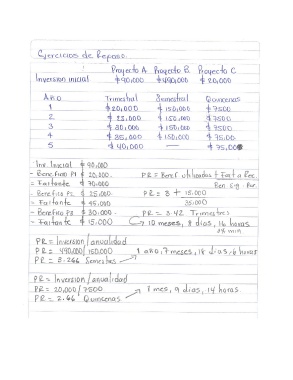 Ejercicios de Repaso.
Proyecto A Proyecto B. Proyecto C
Inversion inicial $90,000 $490,000 $ 20,000
Año Trimestral Semestral Quincenas
1 $20,000 $150,000 $7500
2 $ 25,000 $150,000 $7500
3 $ 30,000 $150,000 $7500
4 $ 35,000 $150,000 $75,00
5 $ 40,000 — $75,00
Inv. Inicial $ 90,000
- Beneficio P1 $ 20,000. PR = Benef utilizados + Falta Rec.
- Faltante $ 70,000 Ben. Sig. Per.
- Beneficio P2 $ 25,000 PR = 3 + 15.000
- Faltante $ 45,000 35.000
- Benefico P3 $ 30.000 PR = 3.42 Trimestres
- Faltante $ 15.000 10 meses, 8 dias, 14 horas
min
PR = Inversion / anualidad
PR = 490,000/150.000 1 año, 7 meses, 18 dias, 6 horas
PR = 3.266 Semestres
PR = Inversion / anualidad
PR = 20,000 / 7500 1 mes, 9 dias, 14 horas
PR = 2.66 Quincenas